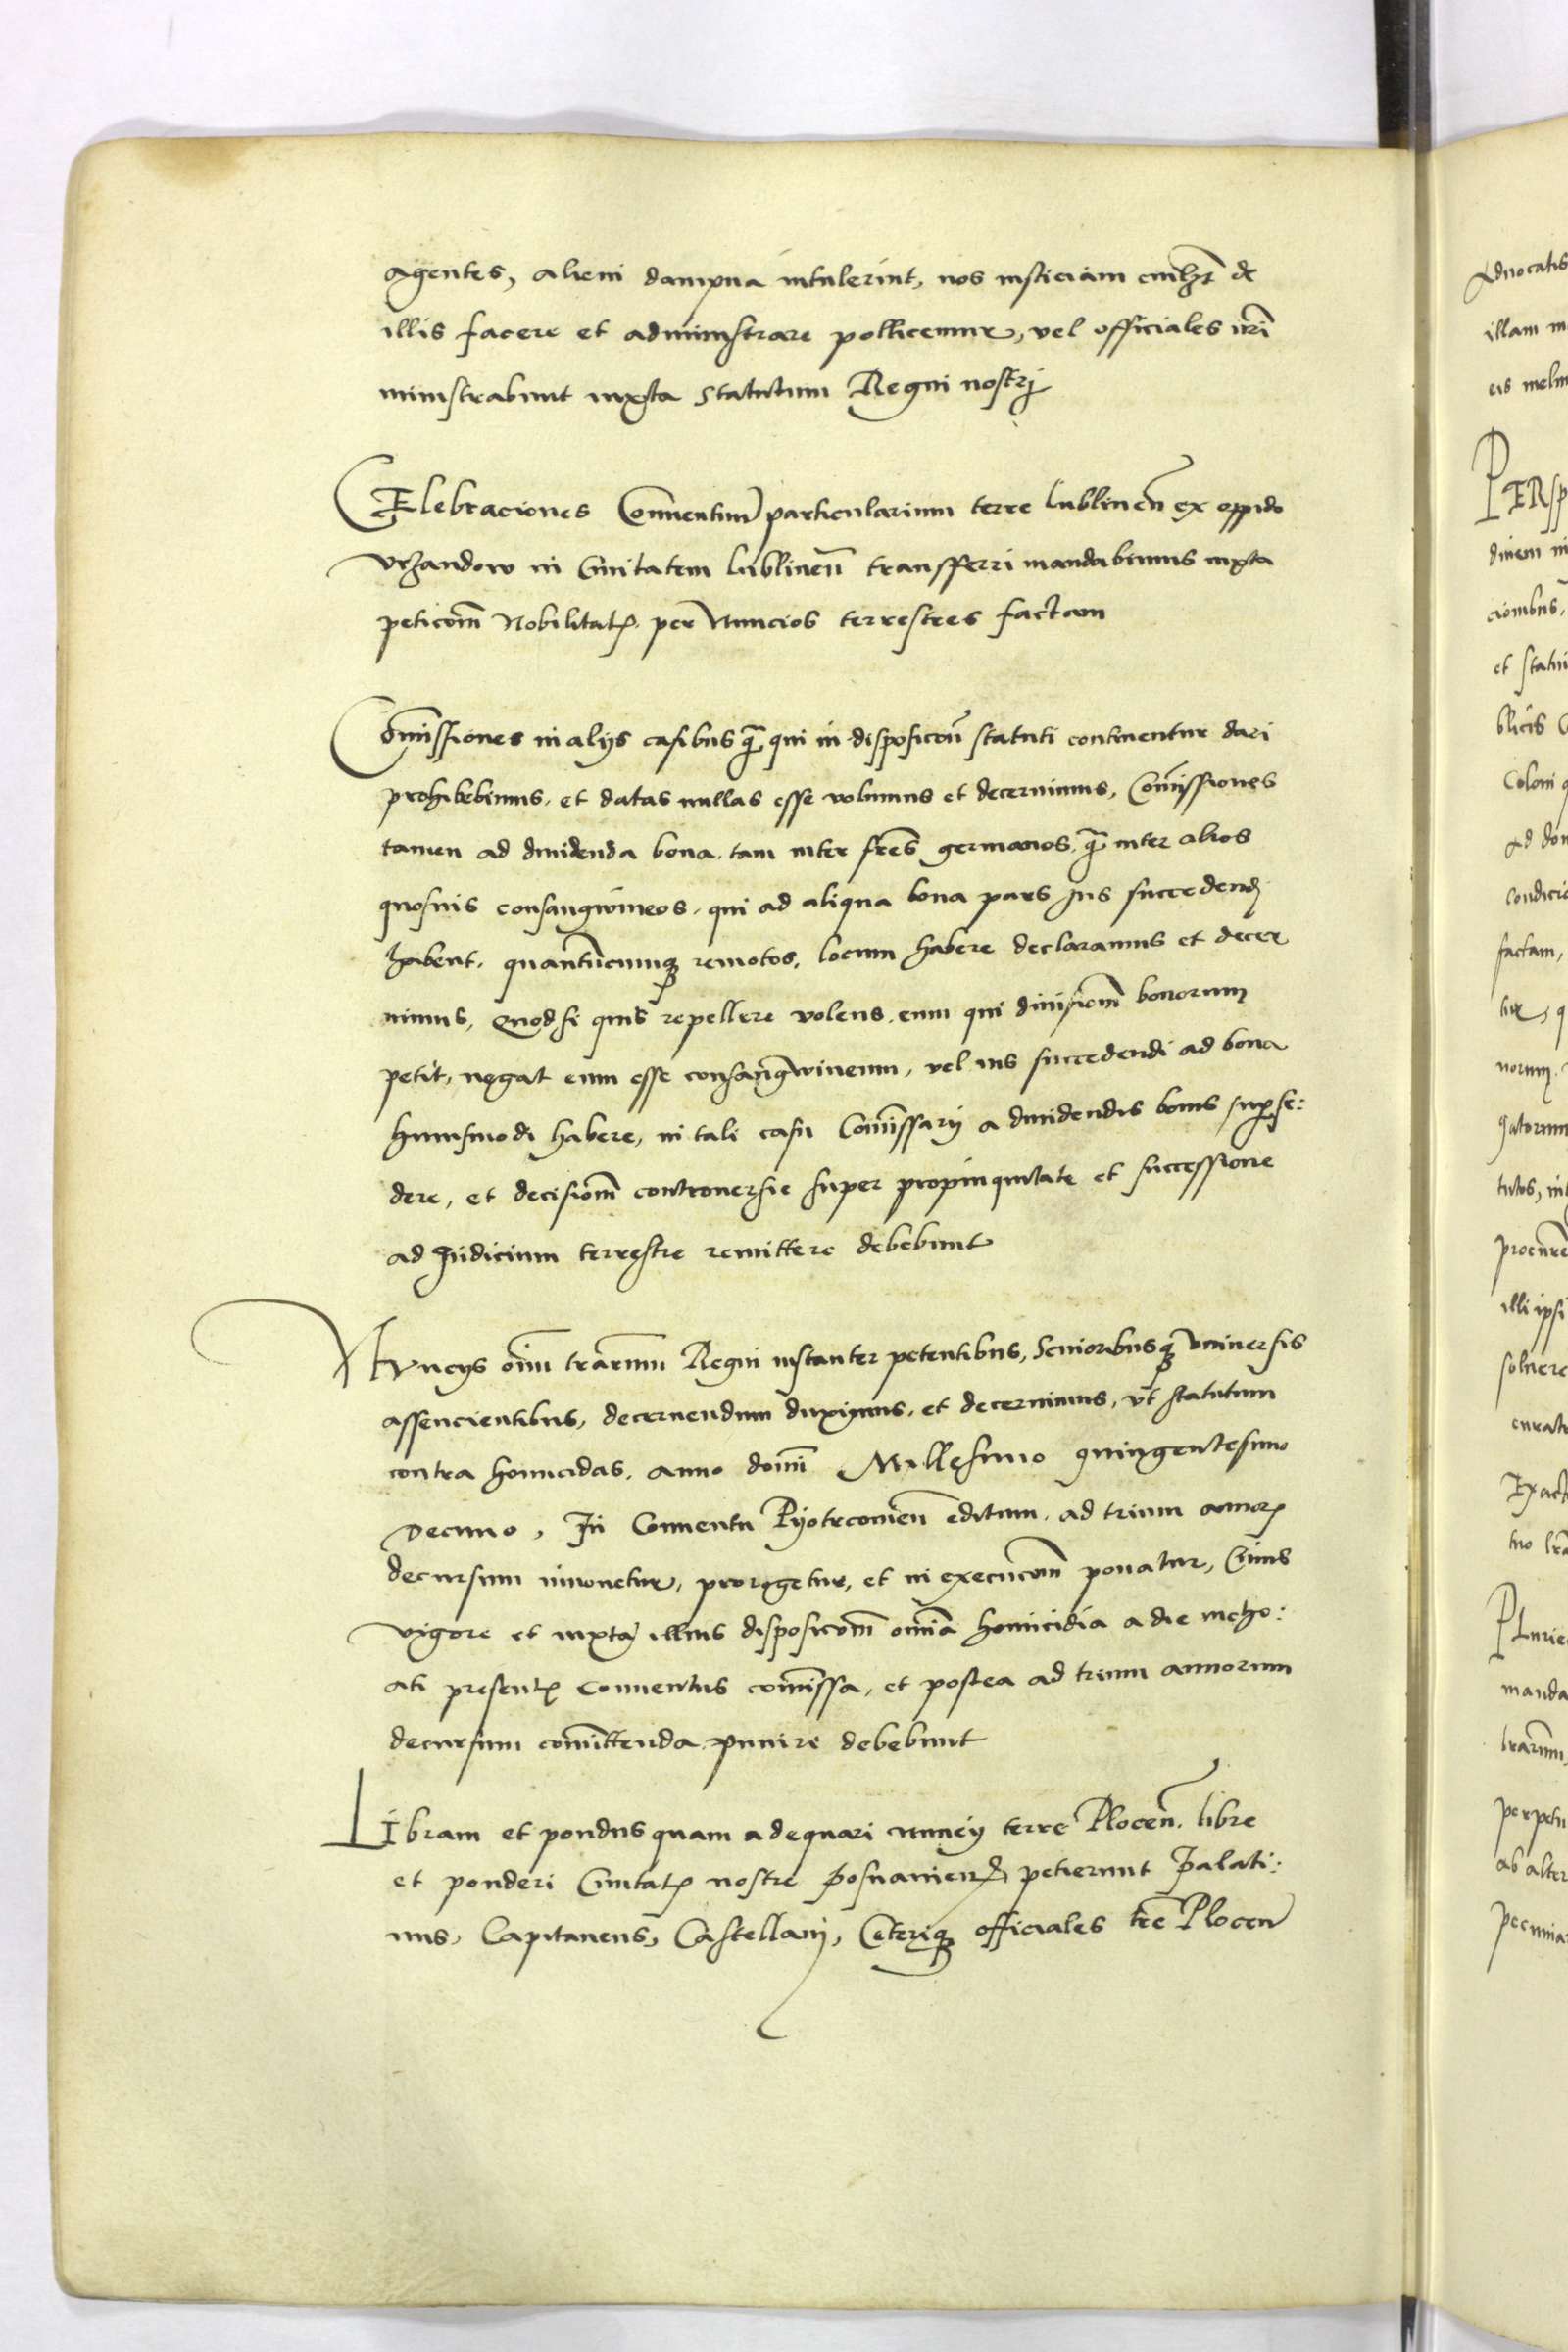 agentes, alicui dampna intulerint, nos insticiam de
illis facere et administrare pollicemur, vel officiales nr̃i
ministrabunt iuxta statutum Regni nostrj
CElebraciones Conuentuũ particularium terre Lublineñ ex oppido
Vrzandow in Ciuitatem Lublineñ transfferri mandabimus iuxta
peticoñem Nobilitatꝭ per Nuncios terrestres factam
Com̃issiones in alijs casibus q̃ꝫ qui in disposicoñe statuti continentur dari
prohibebimus, et datas nullas esse volumus et decernimus, Com̃issiones
tamen ad diuidenda bona, tam inter fr̃es germanos, q̃ꝫ inter alios
quosuis consangwineos, qui ad aliqua bona pars Jus succedendj
habent, quantũcunqꝫ remotos, locum habere declaramus et decer
nimus, Quodsi quis repellere volens, eum qui diuisioñem bonorum
petit, negat eum esse consangwineum, vel ius succedendi ad bona
huiusmodi habere, in tali casu Com̃issarij a diuidendis bonis suꝑse:
dere, et decisioñem controuersie super propinquitate et successione
ad Judicium terrestre remittere debebunt
NVncys om̃ium tr̃arum Regni instanter petentibus, Senioribusqꝫ vniuersis
assencientibus, decernendum duximus, et decernimus, vt statutum
contra homicidas, anno domĩ Millesimo quingentesimo
decimo, In Conuentu Pijotrconieñ editum, ad trium annorꝫ
decursum innouetur, prorogetur, et in execucoñem ponatur, Cuius
vigore et iuxta illius disposicoñem om̃ia homicidia a die incho:
ati presentꝭ Conuentus com̃issa, et postea ad trium annorum
decursum com̃ittenda punire debebunt
LIbram et pondus quam adequari nuncij terre Ploceñ. libre
et ponderi Ciuitatꝭ nostre Posnanieñ petierunt Palati:
nus, Capitaneus, Castellani, Ceteriqꝫ officiales tr̃e Ploceñ
Aduocatis
illam
eis
PERsp
ciombus,
et statui
blicis
Coloni
Ad
condicio
factam,
tur, q
norum
tutos, in
procur
illi ipsi
soluere
Exact
tuo
Plurie
manda
tr̃arum
perpetu
ab alter
pecunia